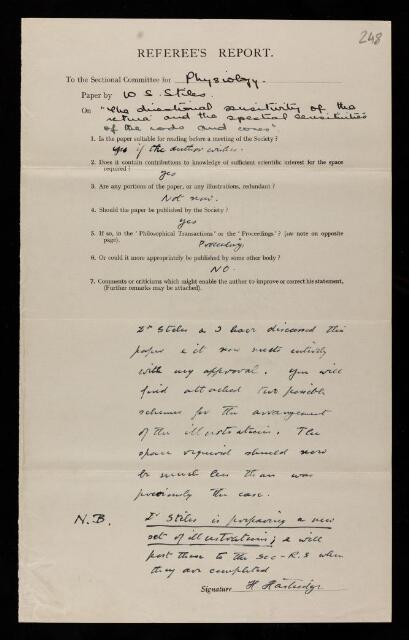 248
REFEREE'S REPORT.
To the Sectional Committee for Physiology.
Paper by W. S. Stiles.
On "The directional sensitivity of the
retina and the spectral sensitivities
of the rods and cones"
1. Is the paper suitable for reading before a meeting of the Society?
yes if the author wishes.
2. Does it contain contributions to knowledge of sufficient scientific interest for the space
required?
yes
3. Are any portions of the paper, or any illustrations, redundant?
Not now.
4. Should the paper be published by the Society?
yes
5. If so, in the 'Philosophical Transactions' or the 'Proceedings'? (see note on opposite
page).
Proceedings
6. Or could it more appropriately be published by some other body?
NO.
7. Comments or criticisms which might enable the author to improve or correct his statement,
(Further remarks may be attached).
Dr Stiles & I have discussed this
paper & it now meets entirely
with my approval. You will
find attached two possible
schemes for the arrangement
of the illustrations. The
space required should now
be much less than was
previously the case.
N.B. Dr Stiles is preparing a new
set of illustrations; & will
post these to the Sec-R.S when
they are completed
Signature H. Hartridge